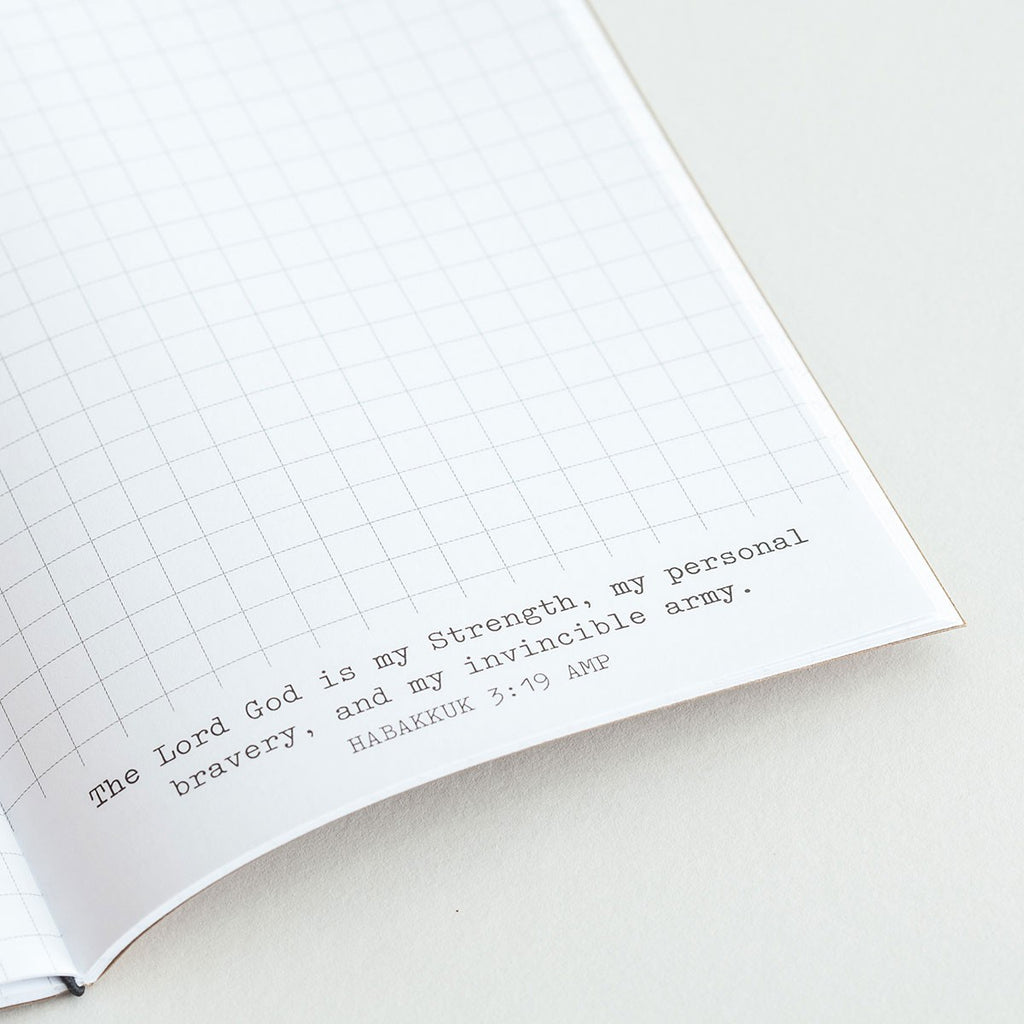 The Lord God is my Strength, my personal
bravery, and my invincible army.
HABAKKUK 3:19 AMP